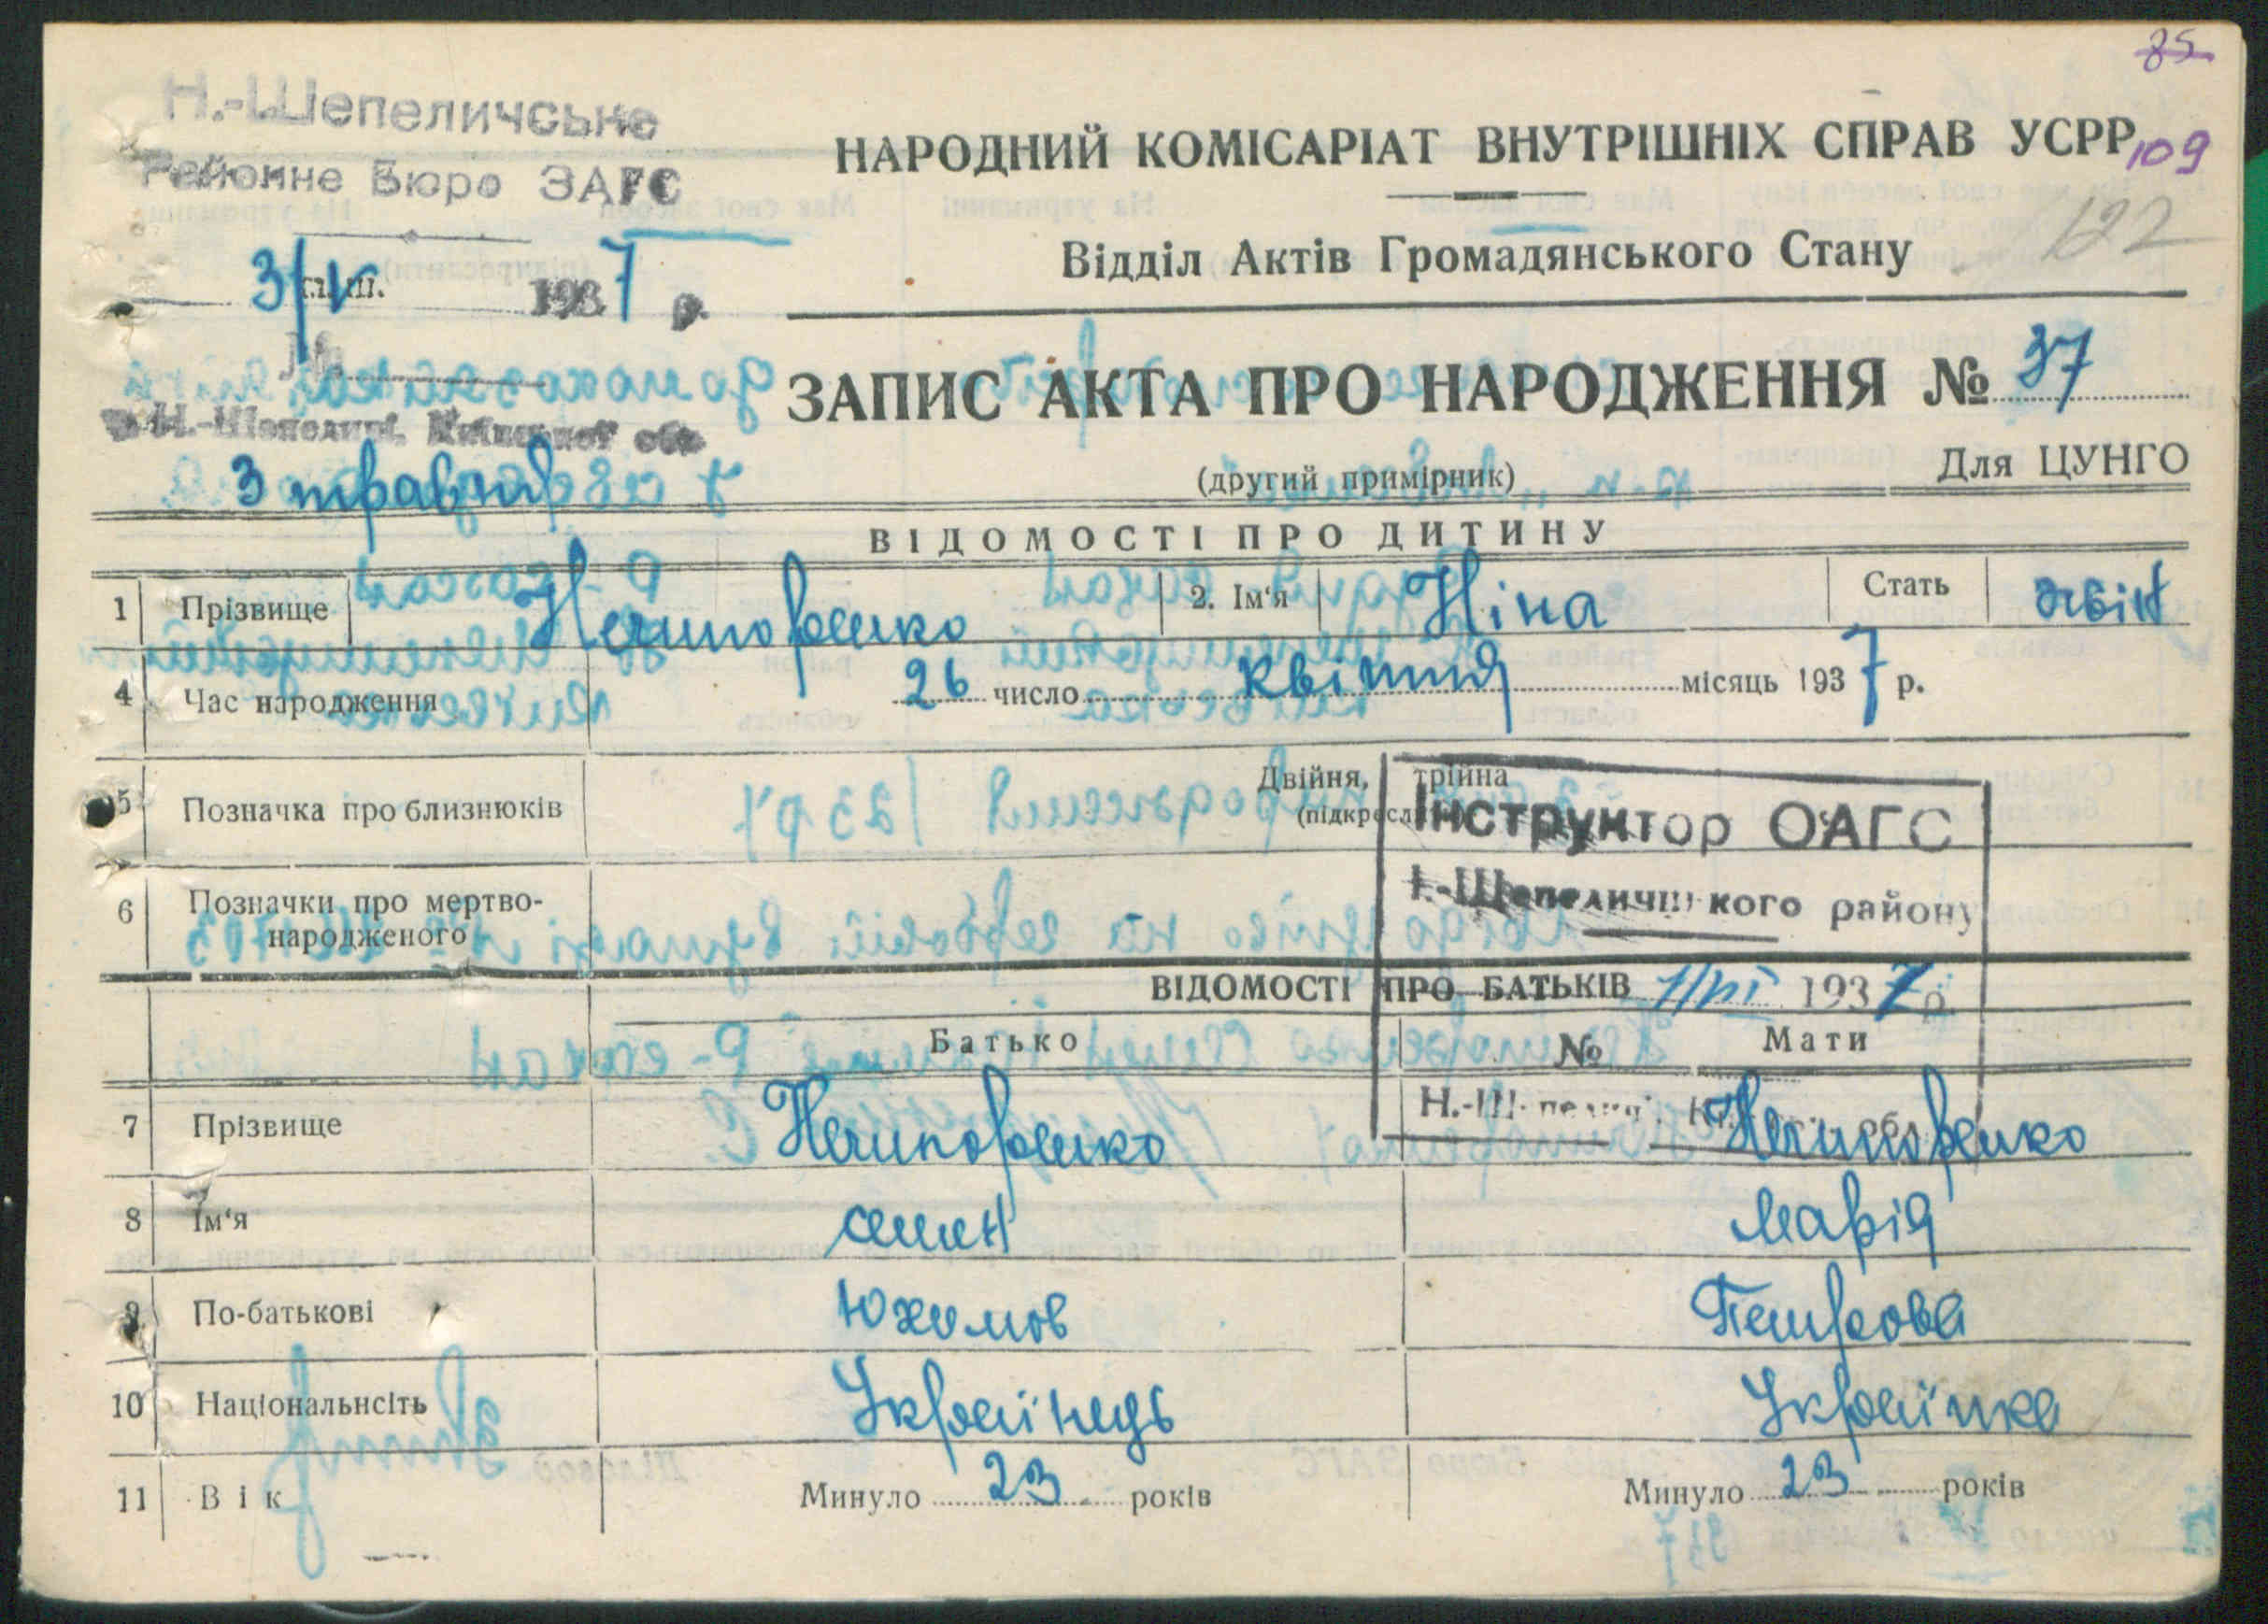 85
Н.-Шепеличське
Районне Бюро ЗАГС
НАРОДНИЙ КОМІСАРІАТ ВНУТРІШНІХ СПРАВ УСРР
109
122
Відділ Актів Громадянського Стану
3/V 1937 р.
№
ЗАПИС АКТА ПРО НАРОДЖЕННЯ № 37
Н.-Шепеличі, Київської обл.
3 травня
(другий примірник)
Для ЦУНГО
ВІДОМОСТІ ПРО ДИТИНУ
1 Прізвище Нечипоренко 2. Ім'я Ніна Стать жін
4 Час народження 26 число квітня місяць 1937 р.
5 Позначка про близнюків Двійня, трійна
(підкреслити)
Інструктор ОАГС
6 Позначки про мертво-
народженого
Н.-Шепелицького району
ВІДОМОСТІ ПРО БАТЬКІВ
1/VI 1937 р.
Батько Мати
№
7 Прізвище Нечипоренко Нечипоренко
8 Ім'я Семен Марія
9 По-батькові Юхимов Петрова
10 Національнсіть Українець Українка
11 Вік Минуло 23 років Минуло 23 років